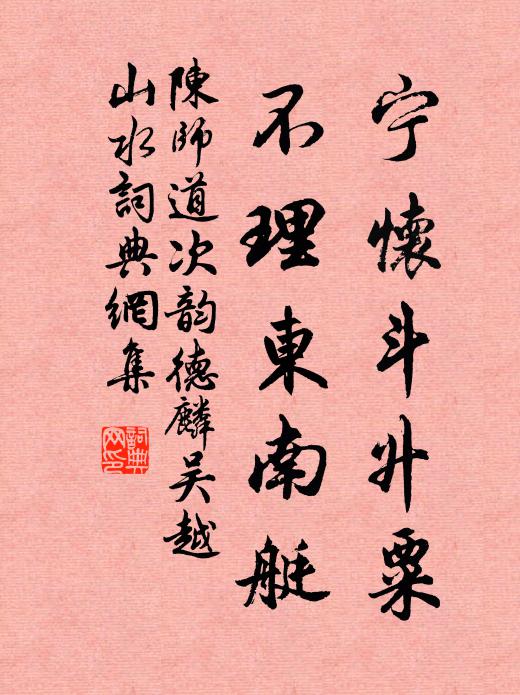 宁懷斗升粟
不理東南艇
陳師道次韵德麟吴越
山水詞典網集
詞典網印